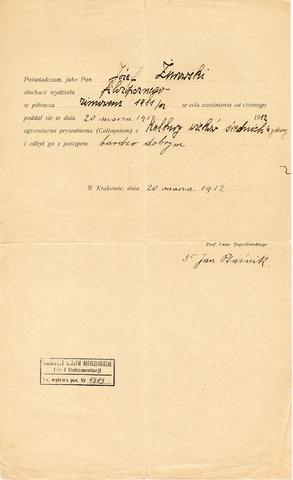 Poświadczam, jako Pan Józef Żurowski
słuchacz wydziału filozoficznego
w półroczu zimowem 1911/12 w celu uwolnienia od czesnego
poddał się w dniu 20 marca 1912 1912
egzaminowi prywatnemu (Colloquium) z Kultury wieków średnich 4 godziny
i odbył go z postępem bardzo dobrym
W Krakowie, dnia 20 marca 1912
Prof. Uniw. Jagiellońskiego
Dr Jan Ptaśnik.
MUZEUM ARCHEOLOGICZNE
Dział Dokumentacji
Ks. wpływu poz. Nr